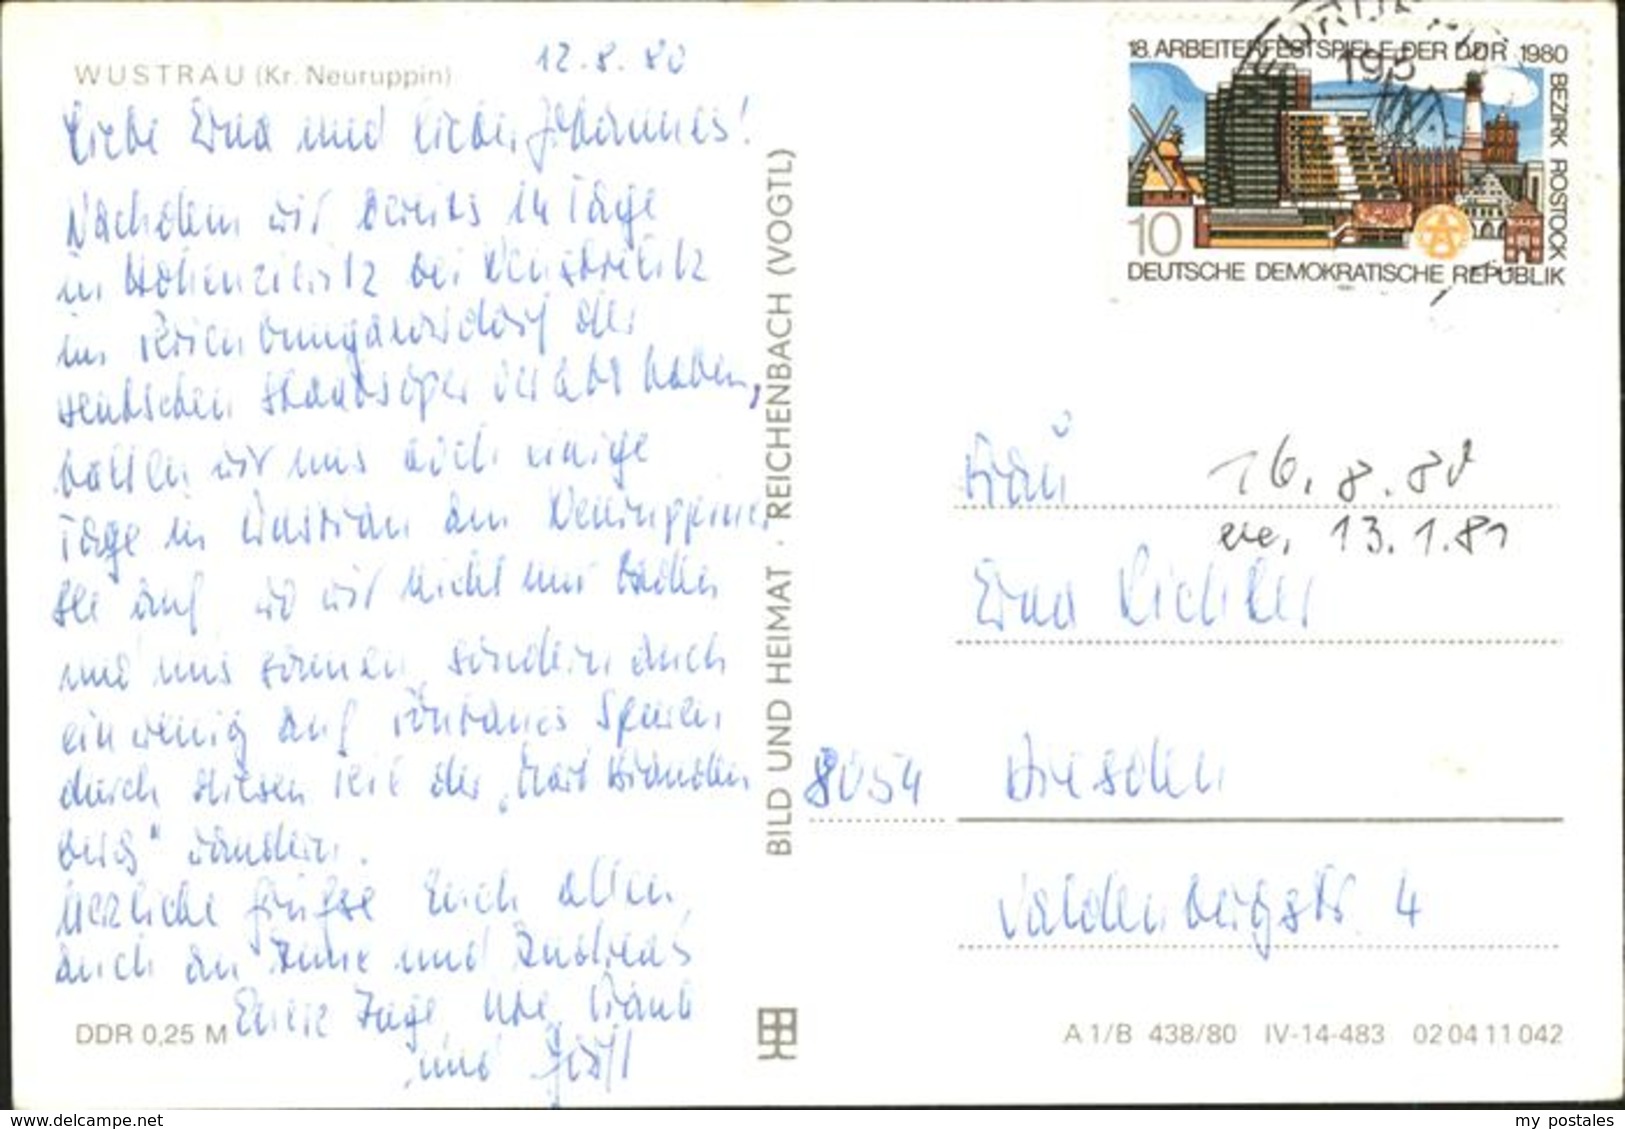 WUSTRAU (Kr. Neuruppin)
12.8.80
Liebe Erna und lieber Johannes!
Nachdem wir bereits 14 Tage
in Hohenzieritz bei Neustrelitz
im der
deutschen Staatsoper verlebt haben,
halten wir uns noch einige
Tage in Wustrau am Neuruppiner
See auf, wo wir nicht nur baden
und uns sonnen, sondern auch
ein wenig auf Fontanes Spuren
durch diesen Teil der "Mark Branden
berg" wandern.
Herzliche Grüße Euch allen,
auch an Anne und Andreas
Eure Inge, Ute, Frank
und
DDR 0,25 M
BILD UND HEIMAT · REICHENBACH (VOGTL)
18. ARBEITERFESTSPIELE DER DDR 1980
BEZIRK ROSTOCK
10
DEUTSCHE DEMOKRATISCHE REPUBLIK
195
Frau
16.8.80
13.1.81
Erna Richter
8054 Dresden
4
A 1/B 438/80 IV-14-483 02 04 11 042
delcampe.net
my postales